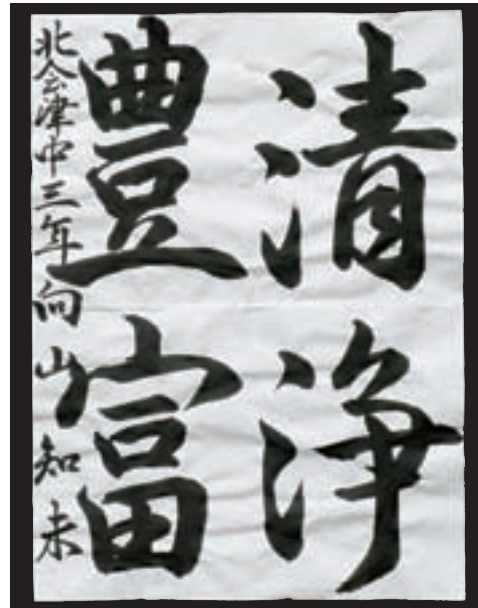 清浄
豊富
北会津中三年向山知未